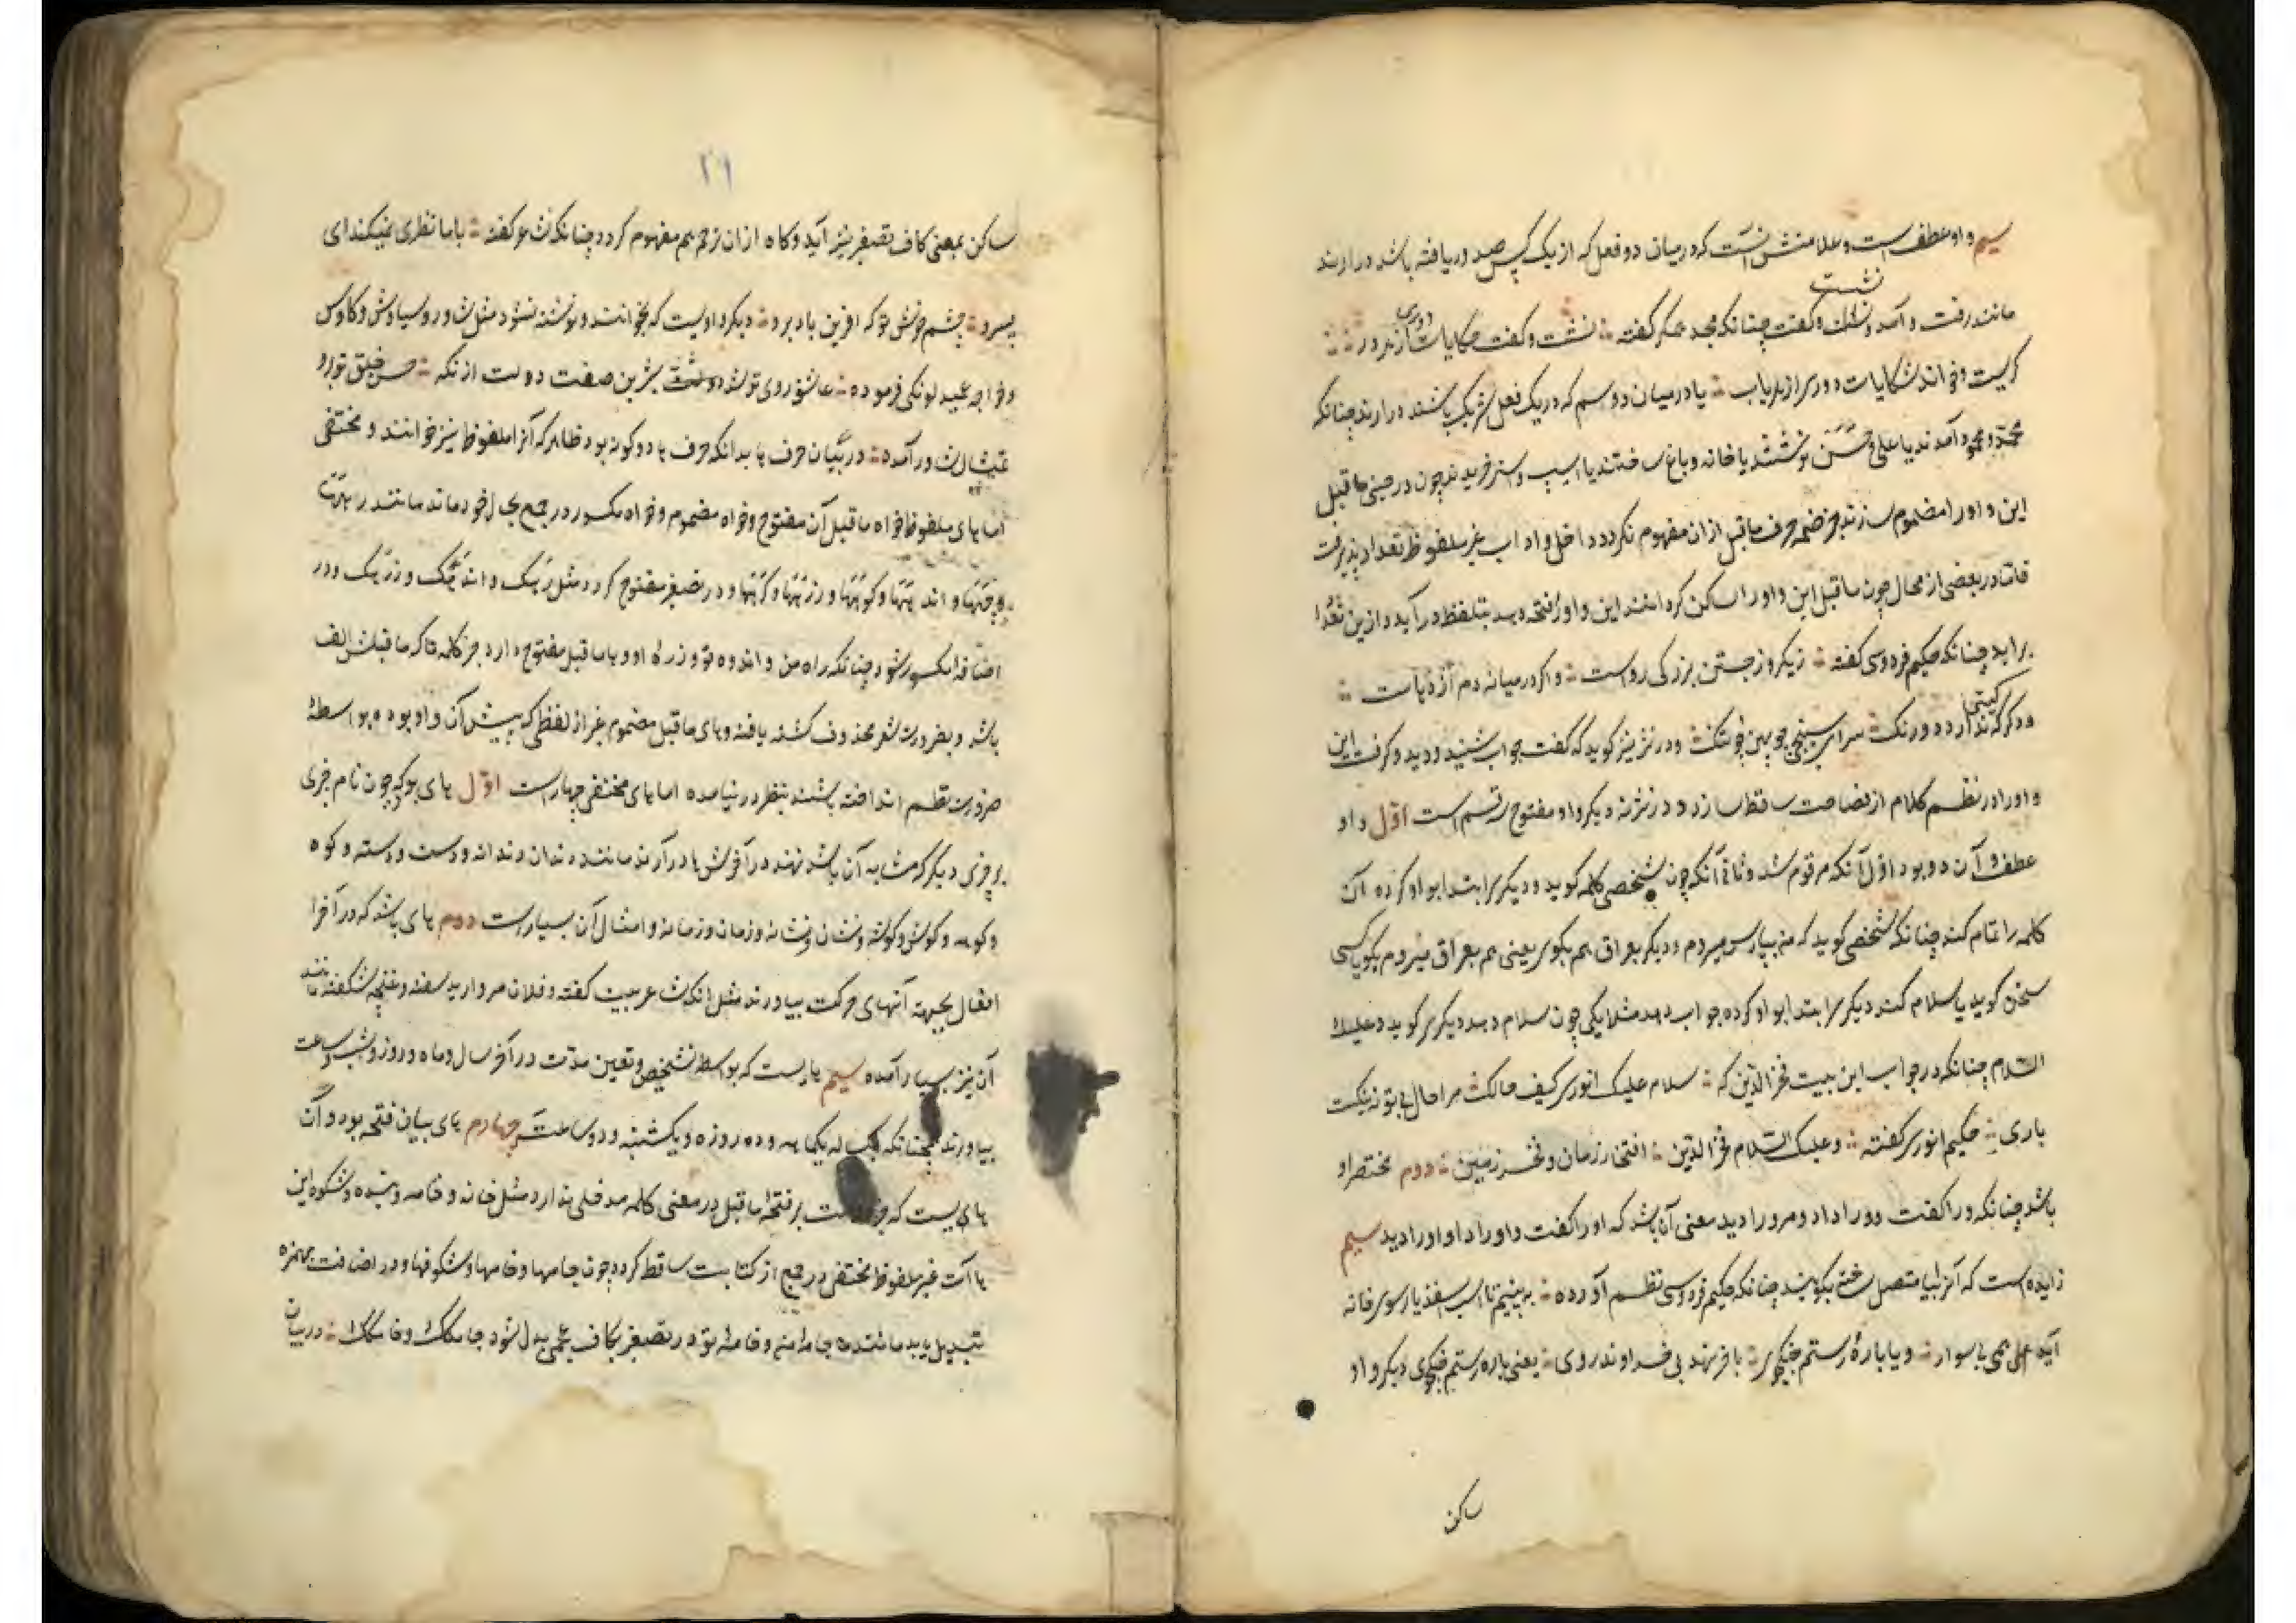 سیم واو عطف است و علامتش آنست که درمیان دو فعل که از یک کس صدور یافته باشد درارند
نشست
مانند رفت و آمد و نشست و گفت چنانکه مجد همگر گفته نشست و گفت حکایات دوری از بر در
گریست و خواند شکایات دوری از هر باب یا درمیان دو اسم که در یک فعل شریک باشند درارند چنانکه
محمد و محمود آمدند یا علی و حسن نوشتند یا خانه و باغ ساختند یا اسپ و استر خریدند چون در حینی ماقبل
این واو را مضموم سازند و جز ضمه حرف ماقبل ازان مفهوم نکردد داخل واو اب غیر ملفوظ تعداد پذیرفت
فاما در بعضی از محال چون ماقبل این واو را ساکن کرده اند این واو را فتحه دهند بتلفظ درآید و ازین تعداد
برآید چنانکه حکیم فردوسی گفته ز یکرو ز جستن بزرکی رواست و اکر درمیانه دم اژدهاست
وذکر که ندارد درنک سرای سپنجی چو پهن و چه تنک و در نثر نیز کوید که گفت جواب شنید و دید و گرفت این
واو را در نظم کلام از فصاحت ساقط سازد و در نثر نه دیکر واو مفتوح سه قسم است اول واو
عطف و آن دو بود اول آنکه مرقوم شد و ثانی آنکه چون شخصی کلمه کوید و دیکری ابتدا بواو کرده آن
کلمه را تمام کند چنانکه شخصی کوید که من بپارس میروم و دیکر بعراق هم بکوی یعنی هم بعراق میروم بکو یا کسی
سخن کوید یا سلام کند دیکری ابتدا بواو کرده جواب دهد مثلا یکی چون سلام دهد دیکری کوید و علیک
السلام چنانکه در جواب این بیت فخرالدین که سلام علیک انوری کیف حالک مرا حال بی تو نه نیکست
باری حکیم انوری گفته وعلیک السلام فخرالدین افتخار زمان و فخر زمین دوم مختصر او
باشد چنانکه ورا گفت و ورا داد و مرورا دید معنی آن باشد که او را گفت و او را داد و او را دید سیم
زایده است که آنرا بیا متصل ساخته بکویند چنانکه حکیم فردوسی نظم آورده به بینیم تا اسب اسفندیار سوی خانه
آید همی بی سوار و یا باره رستم جنکجوی بآخر نهد بی خداوند روی یعنی باره رستم جنکجوی دیکر واو
ساکن
۲۹
ساکن بمعنی کاف تصغیر نیز آید و کاه ازان ترحم هم مفهوم کردد چنانکه شاعر گفته با ما نظری نمیکند ای
پسرو چشم خوش تو که آفرین باد برو دیکر واویست که بخوانند و نوشته نشود مثل شاور و سیاوش و کاوس
و خواجه عمید لومکی فرموده عاشق روی تو شد دولت شیرین صفت دولت ازانکه حسن خلق تورو
تمثال شاور آمده در بیان حرف ها بدانکه حرف ها دو کونه بود ظاهر که آنرا ملفوظ نیز خوانند و مختفی
اما های ملفوظ خواه ماقبل آن مفتوح و خواه مضموم و خواه مکسور در جمع بحال خود ماند مانند رهها
و چهها و اندهها و کوهها و زرهها و کرهها و در تصغیر مفتوح کردد مثل رهک و اندهک و زرهک و در
اضافه مکسور شود چنانکه راه من و اندوه تو و زره او و ها ماقبل مفتوح دارد جز کلمه تا که ماقبلش الف
باشد و بضرورت شعر محذوف کشته یافته و های ماقبل مضموم غیر از لفظی که پیش آن واو بوده بواسطه
ضرورت نظم انداخته باشند بنظر در نیامده اما های مختفی چهار است اول های بود که چون نام چیزی
بر چیزی دیکر که مشابه آن باشد نهند در آخرش ها درآرند مانند دندان دندانه و دست و دسته و کوه
و کوهه و کوش و کوشه و نشان و نشانه و زمان و زمانه و امثال آن بسیار است دوم های باشد که در آخر
افعال بجهته آنهای حرکت بیاورند مثل انکه شاعر بیت گفته و فلان مروارید سفته و غنچه شکفته مانند
آن نیز بسیار آمده سیم هایست که بواسطه تشخیص و تعین مدت در آخر سال و ماه و روز و شب و ساعت
بیاورند چنانکه یکساله یکماهه و ده روزه و یکشنبه و دو ساعته چهارم های بیان فتحه بود و آن
هایست که جز دلالت بر فتحه ماقبل در معنی کلمه مدخلی ندارد مثل خانه و خامه و بنده و شکوه این
هاآت غیر ملفوظ مختفی در جمع از کتابت ساقط کردد چون جامها و خامها و شکوفها و در اضافت بهمزه
تبدیل یابد مانند جامه من و خامه تو در تصغیر بکاف عجمی بدل شود جامکک و خامکک در بیان